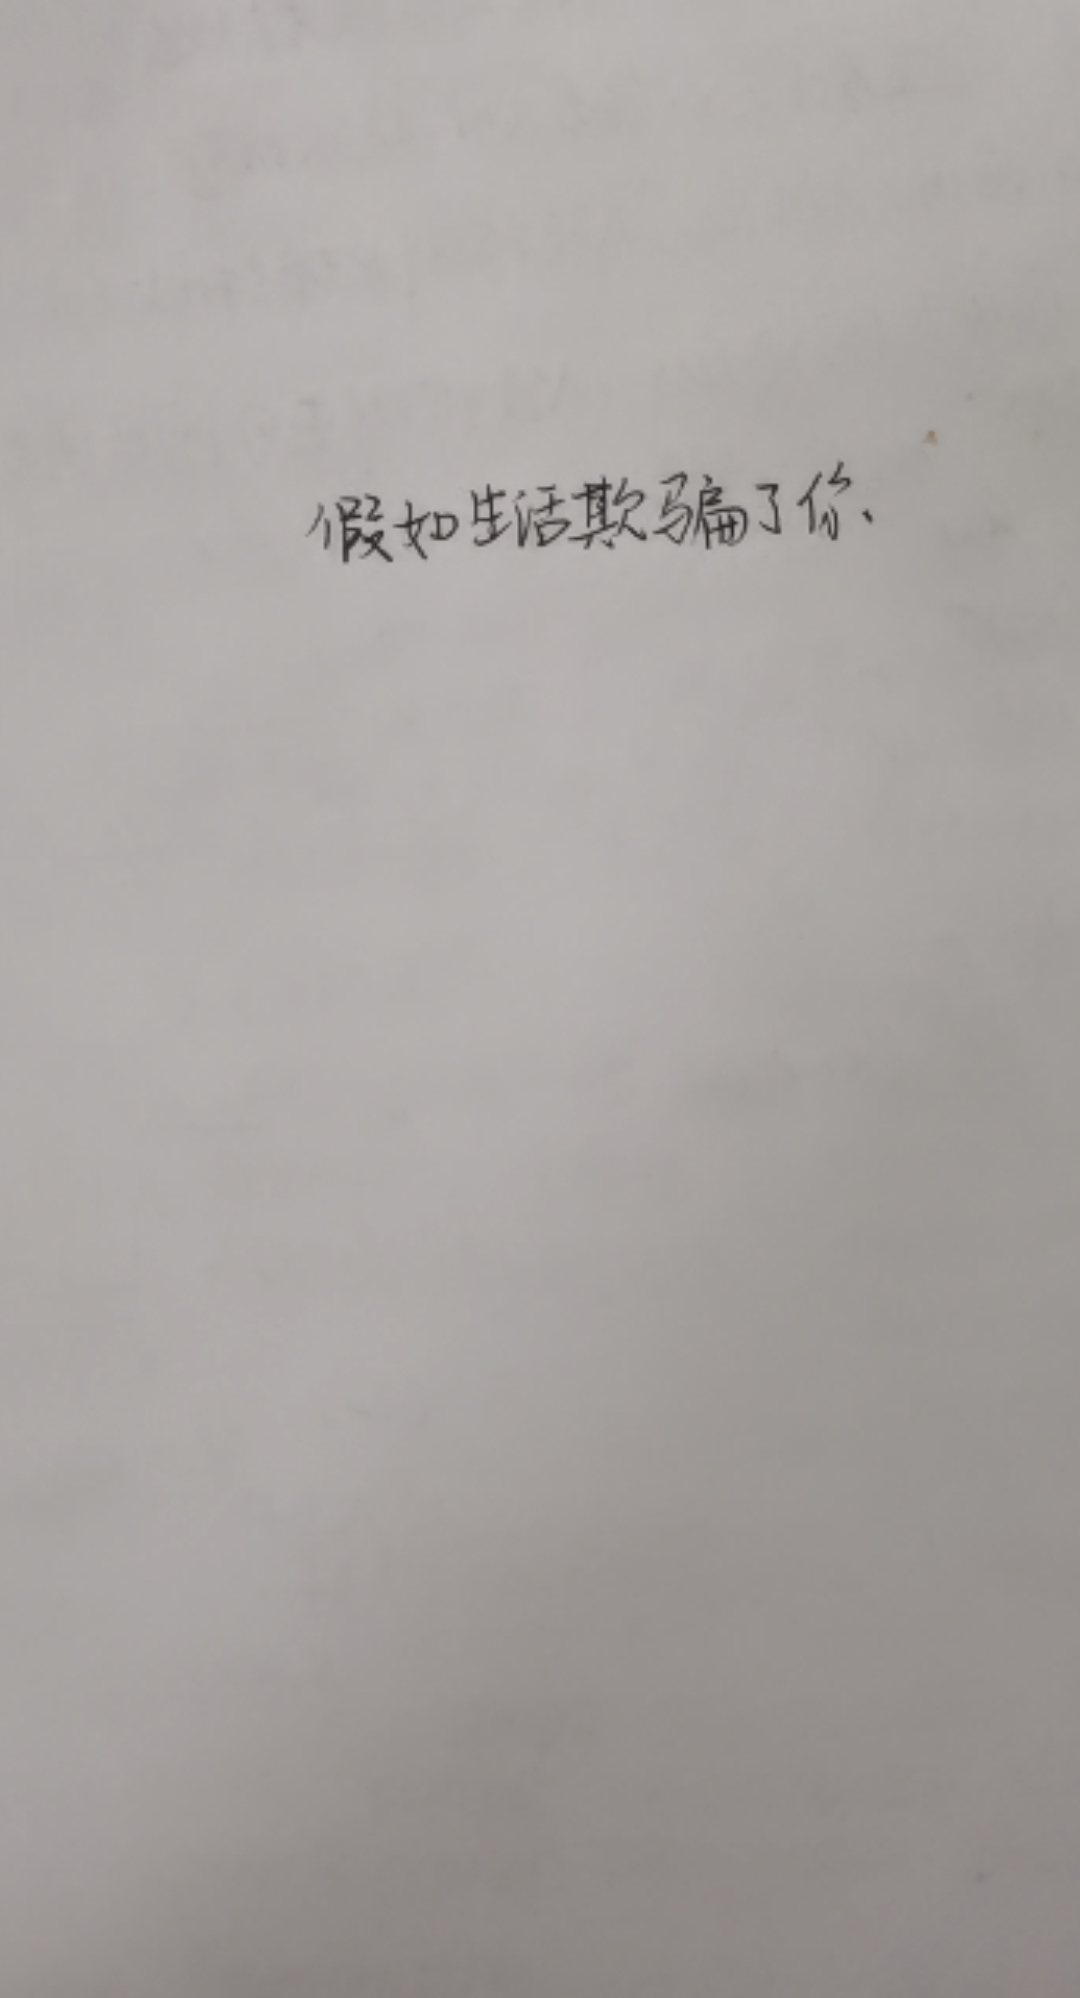 假如生活欺骗了你、